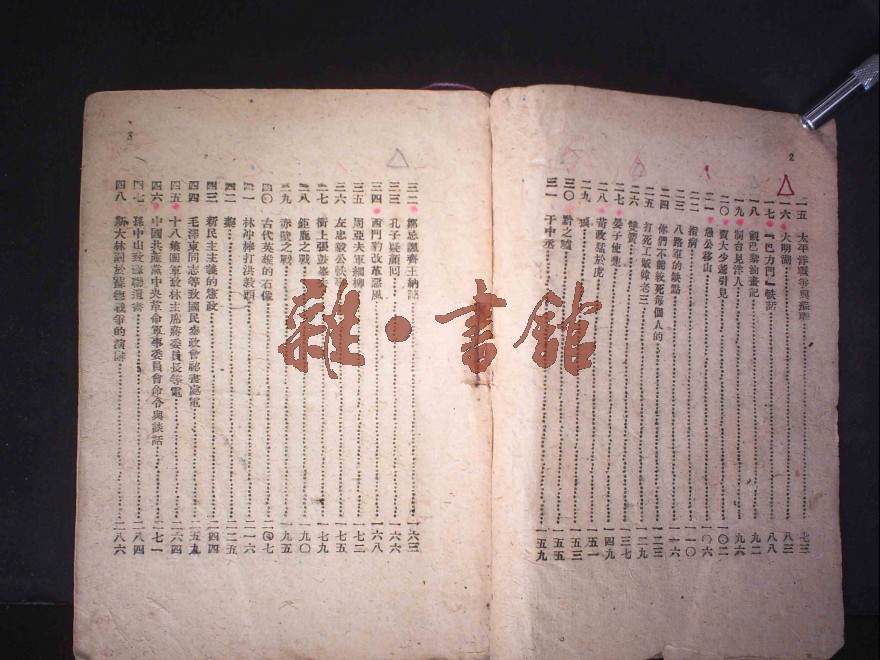 2
一五 太平洋戰爭與蘇聯 七三
一六 大明湖 八三
一七 「巴力門」軼話 八八
一八 觀巴黎油畫記 九二
一九 制台見洋人 九六
二〇 賈大少爺引見 一〇二
二一 愚公移山 一〇六
二二 指病 一一〇
二三 八路軍的缺點 一一六
二四 你們不能餓死每個人的 一二三
二五 打死工賊傅老三 一二九
二六 雙簧 一三七
二七 晏子使楚 一四九
二八 苛政猛於虎 一五一
二九 一五三
三〇 黔之驢 一五五
三一 于中丞 一五九
3
三二 鄒忌諷齊王納諫 一六三
三三 孔子疑顏回 一六六
三四 西門豹改革惡風 一六八
三五 周亞夫軍細柳 一七三
三六 左忠毅公軼事 一七五
三七 衝上張鼓峯去 一七九
三八 鉅鹿之戰 一九〇
三九 赤壁之戰 一九五
四〇 古代英雄的石像 二〇七
四一 林冲棒打洪教頭 二一六
四二 二二五
四三 新民主主義的憲政 二四四
四四 毛澤東同志等致國民參政會祕書處電 二五九
四五 十八集團軍致林主席蔣委員長等電 二六四
四六 中國共產黨中央革命軍事委員會命令與談話 二七一
四七 孫中山致蘇聯遺書 二八四
四八 斯大林關於蘇德戰爭的演辭 二八六
雜·書館